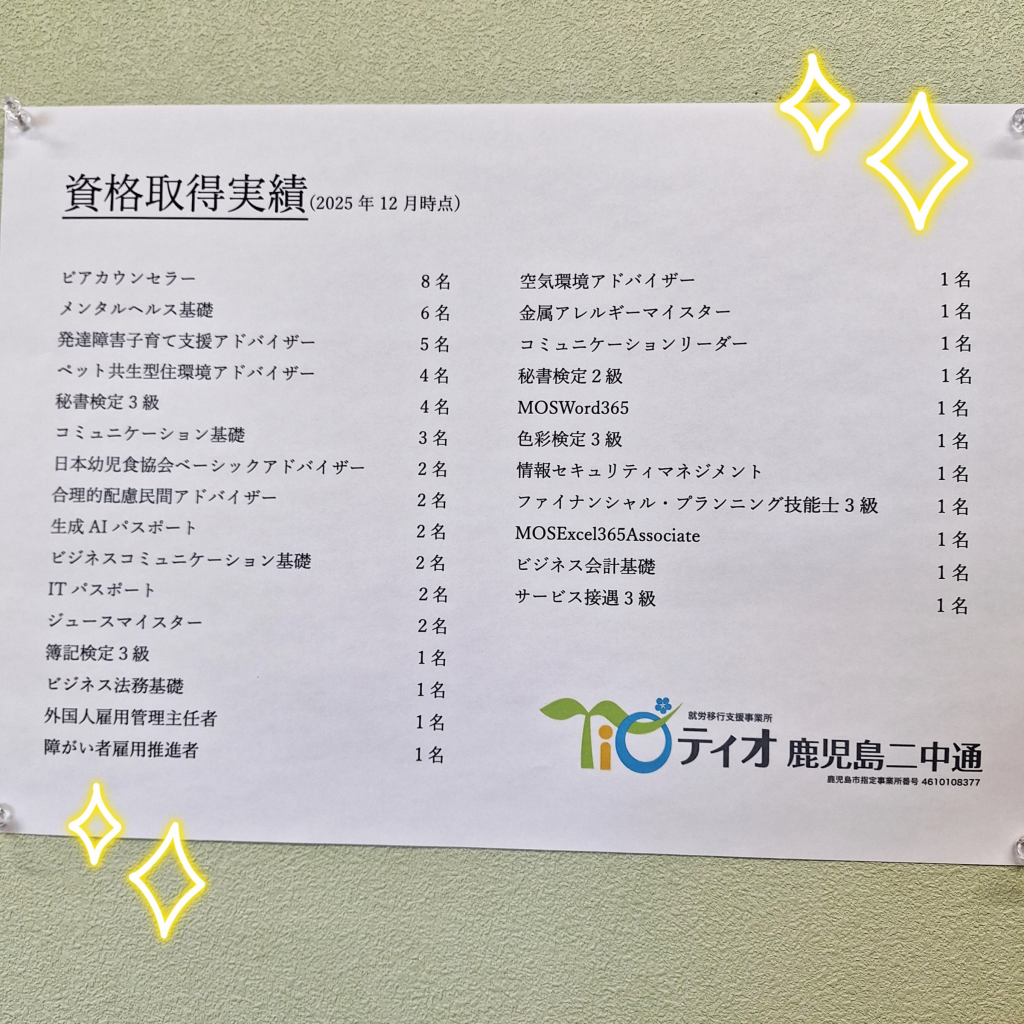 資格取得実績(2025年12月時点)
ピアカウンセラー 8名
メンタルヘルス基礎 6名
発達障害子育て支援アドバイザー 5名
ペット共生型住環境アドバイザー 4名
秘書検定3級 4名
コミュニケーション基礎 3名
日本幼児食協会ベーシックアドバイザー 2名
合理的配慮民間アドバイザー 2名
生成AIパスポート 2名
ビジネスコミュニケーション基礎 2名
ITパスポート 2名
ジュースマイスター 2名
簿記検定3級 1名
ビジネス法務基礎 1名
外国人雇用管理主任者 1名
障がい者雇用推進者 1名
空気環境アドバイザー 1名
金属アレルギーマイスター 1名
コミュニケーションリーダー 1名
秘書検定2級 1名
MOSWord365 1名
色彩検定3級 1名
情報セキュリティマネジメント 1名
ファイナンシャル・プランニング技能士3級 1名
MOSExcel365Associate 1名
ビジネス会計基礎 1名
サービス接遇3級 1名
就労移行支援事業所
TiO ティオ 鹿児島二中通
鹿児島市指定事業所番号 4610108377